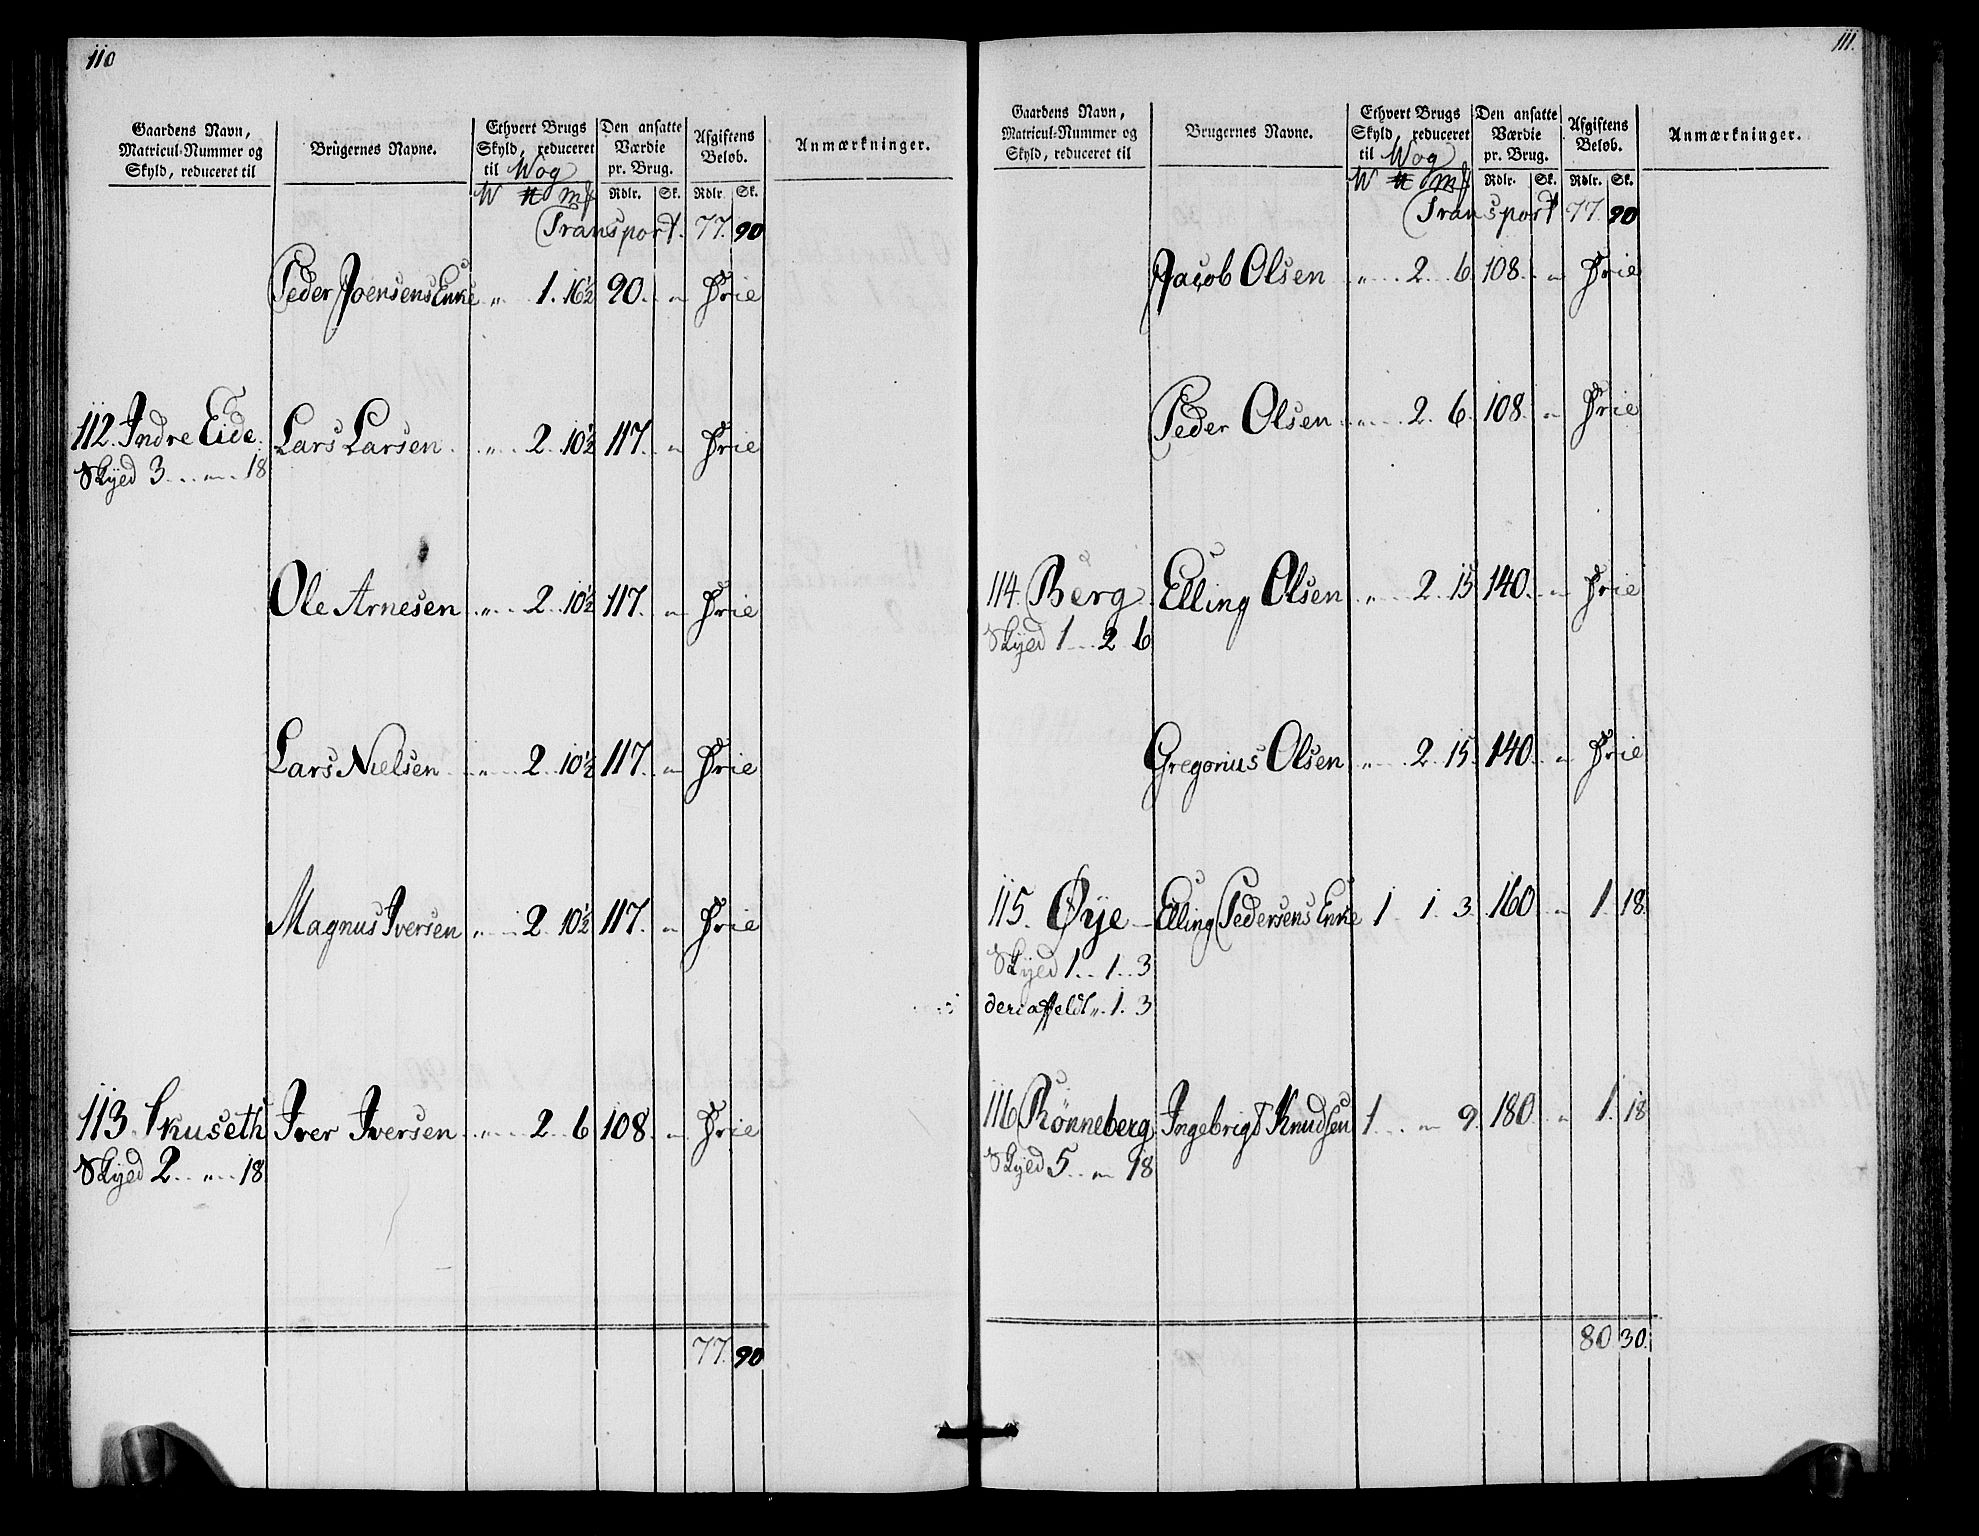 110
Gaardens Navn, Matricul-Nummer og Skyld, reduceret til
Brugernes Navne.
Ethvert Brugs Skyld, reduceret til Wog
Den ansatte Værdie pr. Brug.
Afgiftens Beløb.
Anmærkninger.
W ℔ mk Rdlr. Sk. Rdlr. Sk.
Transport. 77. 90
Peder Joensens Enke „ 1. 16½ 90. „ Frie
112. Indre Eide. Lars Larsen „ 2. 10½ 117. „ Frie
Skyld 3 „ 18
Ole Arnesen „ 2. 10½ 117. „ Frie
Lars Nielsen „ 2. 10½ 117. „ Frie
Magnus Iversen „ 2. 10½ 117. „ Frie
113. Skuseth Iver Iversen „ 2 6 108. „ Frie
Skyld 2 „ 18
77. 90
111.
Gaardens Navn, Matricul-Nummer og Skyld, reduceret til
Brugernes Navne.
Ethvert Brugs Skyld, reduceret til Wog
Den ansatte Værdie pr. Brug.
Afgiftens Beløb.
Anmærkninger.
W ℔ mk Rdlr. Sk. Rdlr. Sk.
Transport 77. 90
Jacob Olsen „ 2. 6 108. „ Frie
Peder Olsen „ 2. 6. 108. „ Frie
114. Berg Elling Olsen „ 2. 15 140. „ Frie
Skyld 1 2 6
Gregorius Olsen „ 2. 15. 140. „ Frie
115. Øye Elling Pedersens Enke 1 1. 3. 160 „ 1. 18.
Skyld 1. 1. 3
deriaffeldt „ 1. 3
116 Rønneberg Ingebrigt Knudsen 1 „ 9. 180. „ 1. 18
Skyld 5 „ 18
80. 30.